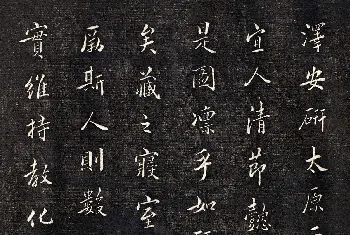 澤安研太原
宜人清節懿
是圖凜乎如
矣藏之寢室
厲斯人則數
實維持教化